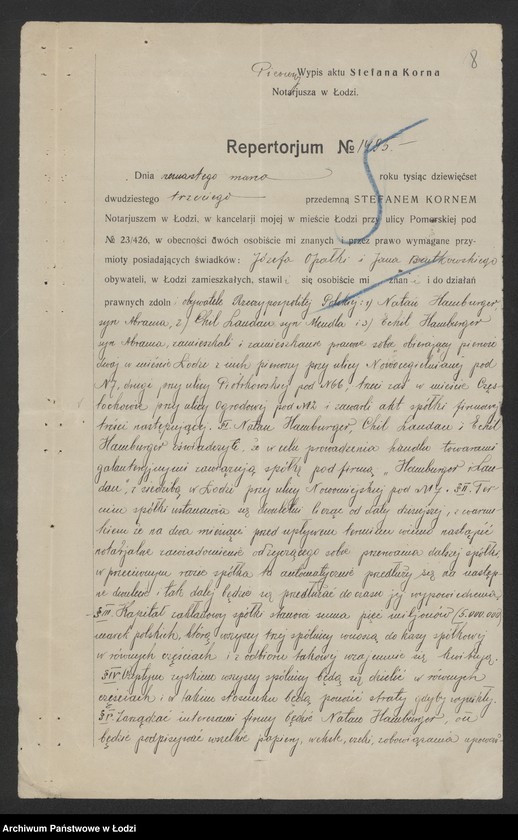 8
Pierwszy Wypis aktu Stefana Korna
Notarjusza w Łodzi.
Repertorjum № 1485.—
Dnia czwartego marca roku tysiąc dziewięćset
dwudziestego trzeciego przedemną STEFANEM KORNEM
Notarjuszem w Łodzi, w kancelarji mojej w mieście Łodzi przy ulicy Pomorskiej pod
№ 23/426, w obecności dwóch osobiście mi znanych i przez prawo wymagane przy-
mioty posiadających świadków: Józefa Opałki i Jana
obywateli, w Łodzi zamieszkałych, stawili się osobiście mi znani i do działań
prawnych zdolni obywatele Rzeczypospolitej Polskiej: 1) Natan Hamburger,
syn Abrama, 2) Chil Landau syn Mendla i 3) Echil Hamburger
syn Abrama, zamieszkali i zamieszkanie prawne sobie obierający pierwsi
dwaj w mieście Łodzi z nich pierwszy przy ulicy Nowocegielnianej pod
N7, drugi przy ulicy Piotrkowskiej pod N66, trzeci zaś w mieście Czę-
stochowie przy ulicy Ogrodowej pod N12 i zawarli akt spółki firmowej
treści następującej: § I. Natan Hamburger, Chil Landau i Echil
Hamburger oświadczyli, że w celu prowadzenia handlu towarami
galanteryjnymi zawiązują spółkę pod firmą „Hamburger i Lan-
dau", z siedzibą w Łodzi przy ulicy Nowomiejskiej pod N 7. § II. Ter-
min spółki ustanawia się licząc od daty dzisiejszej, z warun-
kiem że na dwa miesiące przed upływem terminu winno nastąpić
notarjalne zawiadomienie od życzącego sobie przerwania dalszej spółki,
w przeciwnym razie spółka ta automatycznie przedłuży się na następ-
ne i tak dalej będzie się przedłużać do czasu jej wypowiedzenia.
§ III Kapitał zakładowy spółki stanowi suma pięć miljonów (5.000.000)
marek polskich, którą wszyscy trzej spólnicy wnoszą do kasy spółkowej
w równych częściach i z odbioru takowej wzajemnie się kwitują.
§ IV Czystym zyskiem wszyscy spólnicy będą się dzielić w równych
częściach i w takim stosunku będą ponosić straty gdyby wynikły.
§ V Zarządzać interesami firmy będzie Natan Hamburger, on
będzie podpisywać wszelkie papiery, weksle, czeki, zobowiązania
Archiwum Państwowe w Łodzi